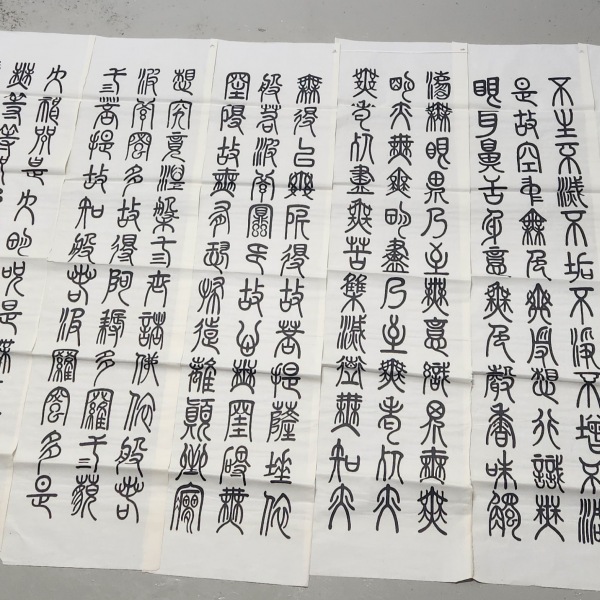 不生不滅不垢不淨不增不減
是故空中無色無受想行識無
眼耳鼻舌身意無色聲香味觸
法無眼界乃至無意識界無無
明亦無無明盡乃至無老死亦
無老死盡無苦集滅道無知亦
無得以無所得故菩提薩埵依
般若波羅蜜多故心無罣礙無
罣礙故無有恐怖遠離顛倒夢
想究竟涅槃三世諸佛依般若
波羅蜜多故得阿耨多羅三藐
三菩提故知般若波羅蜜多是
大神咒是大明咒是無
無等等咒